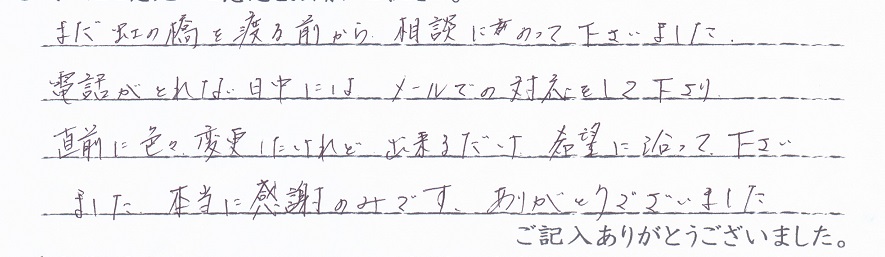 まだ虹の橋を渡る前から、相談にのって下さいました。
電話がとれない日中には メールでの対応をして下さり
直前に色々変更したけれど 出来るだけ 希望に沿って下さい
ました 本当に感謝のみです、ありがとうございました
ご記入ありがとうございました。